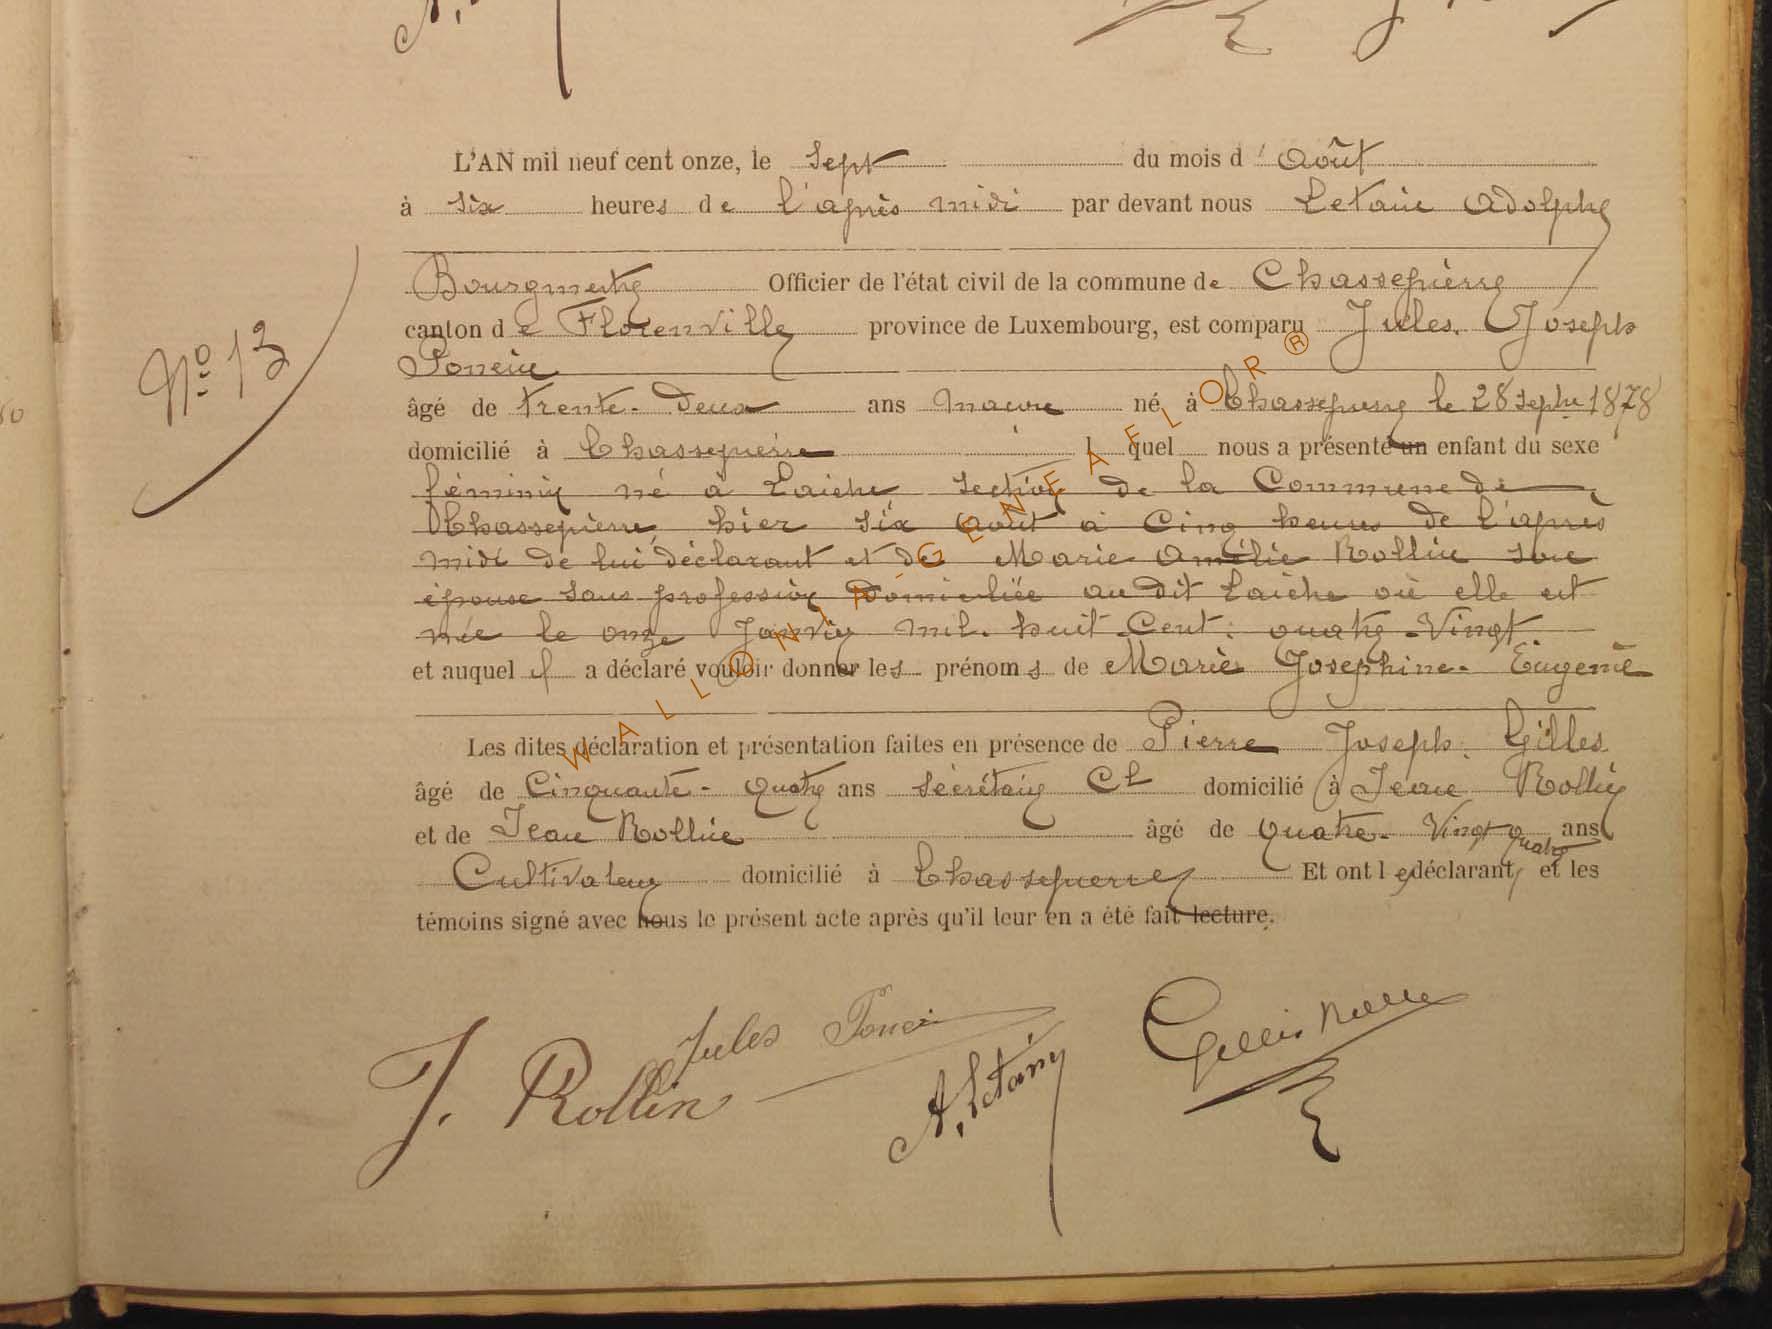 L'AN mil neuf cent onze, le sept du mois d' Août
à six heures de l'après midi par devant nous Letaie Adolphe
Bourgmestre Officier de l'état civil de la commune de Chassepierre
canton de Florenville province de Luxembourg, est comparu Jules Joseph
Poncin
Nº 13
âgé de trente-deux ans né à Chassepierre le 28 Septbre 1878
domicilié à Chassepierre l quel nous a présenté un enfant du sexe
féminin né à Laiche section de la Commune de
Chassepierre, hier six Août à Cinq heures de l'après
midi de lui déclarant et de Marie Amélie Rollin son
épouse sans profession Domiciliée au dit Laiche où elle est
née le onze Janvier mil-huit-Cent-quatre-Vingt
et auquel il a déclaré vouloir donner les prénoms de Marie Josephine-Eugenie
Les dites déclaration et présentation faites en présence de Pierre Joseph Gilles
âgé de Cinquante-quatre ans secrétaire Cl domicilié à Rollin
et de Jean Rollin âgé de quatre-Vingt quatre ans
Cultivateur domicilié à Chassepierre Et ont le déclarant, et les
témoins signé avec nous le présent acte après qu'il leur en a été fait lecture.
Jules Poncin
J. Rollin
A. Letaie
Gilles
WALLONIA-GENEAFLOR®